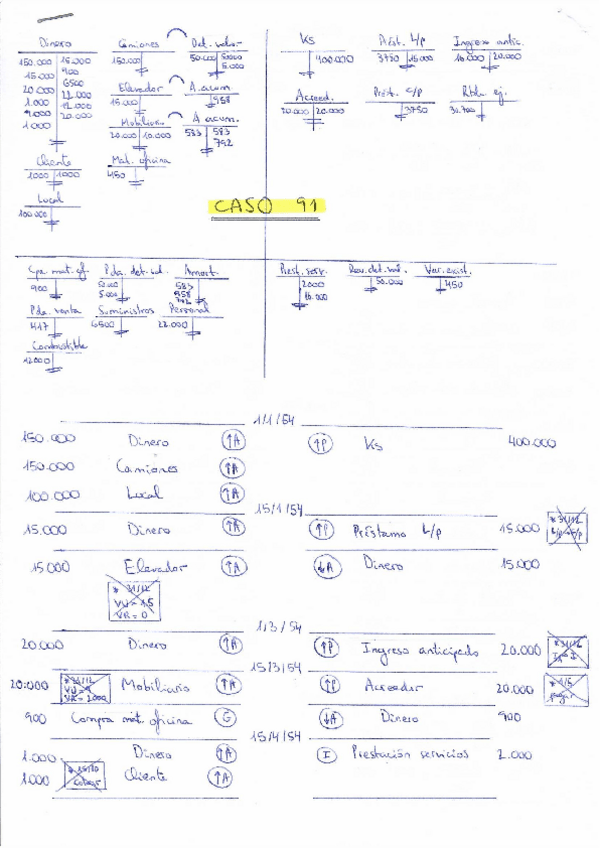 Dinero Camiones Det. valor Ks Prést. L/p Ingreso antic.
150.000 15.000 150.000 50.000 50000 400.000 3750 15.000 10.000 20.000
15.000 900 5.000
20.000 6500 Elevador A.acum. Acreed. Prést. C/p Rtdo. ej.
1.000 22.000 15.000 958 20.000 20.000 3750 30.700
9.000 12.000 Mobiliario A acum.
1.000 20.000 20.000 10.000 583 583
792
Cliente Mat. oficina
1000 1000 450
Local
100.000
CASO 91
Cpa mat. of Pda. det. val. Amort. Prest. serv. Rev. det. val. Var. exist.
900 50.000 583 2000 50.000 450
5.000 958 10.000
792
Pda. venta Suministros Personal
417 6500 22.000
Combustible
12000
1/1/54
150.000 Dinero ↑A ↑P Ks 400.000
150.000 Camiones ↑A
100.000 Local ↑A
15/1/54
15.000 Dinero ↑A ↑P Préstamo L/p 15.000 * 31/12
L/p → c/p
15.000 Elevador ↑A ↓A Dinero 15.000
* 31/12
VU = 15
VR = 0
1/3/54
20.000 Dinero ↑A ↑P Ingreso anticipado 20.000 * 31/12
15/3/54
20.000 * 31/12 Mobiliario ↑A ↑P Acreedor 20.000 * 1/5
VR = 1000 pagar
900 Compra mat. oficina G ↓A Dinero 900
15/4/54
1.000 Dinero ↑A I Prestación servicios 2.000
1000 * 15/10 Cliente ↑A
cobrar